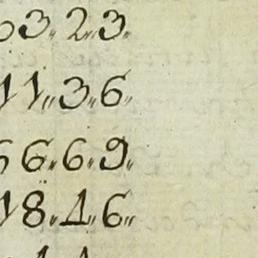 3„ 2„ 3„
11„ 3„ 6„
66„ 6„ 9„
18„ 1„ 6„